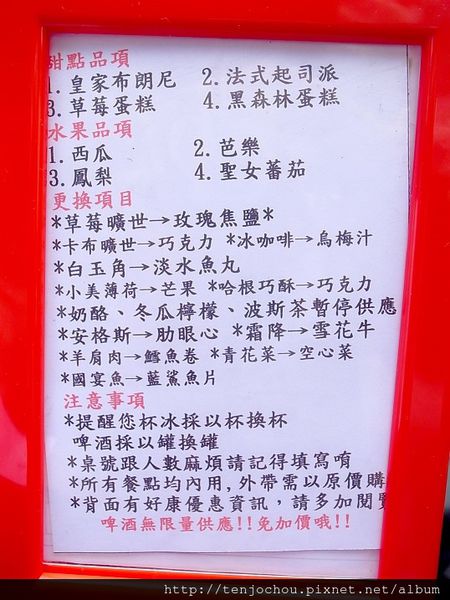 甜點品項
1.皇家布朗尼 2.法式起司派
3.草莓蛋糕 4.黑森林蛋糕
水果品項
1.西瓜 2.芭樂
3.鳳梨 4.聖女蕃茄
更換項目
*草莓曠世→玫瑰焦鹽*
*卡布曠世→巧克力 *冰咖啡→烏梅汁
*白玉角→淡水魚丸
*小美薄荷→芒果 *哈根巧酥→巧克力
*奶酪、冬瓜檸檬、波斯茶暫停供應
*安格斯→肋眼心 *霜降→雪花牛
*羊肩肉→鱈魚卷 *青花菜→空心菜
*國宴魚→藍鯊魚片
注意事項
*提醒您杯冰採以杯換杯
啤酒採以罐換罐
*桌號跟人數麻煩請記得填寫唷
*所有餐點均內用,外帶需以原價購
*背面有好康優惠資訊，請多加閱覽
啤酒無限量供應!!免加價哦!!
http://tenjochou.pixnet.net/album